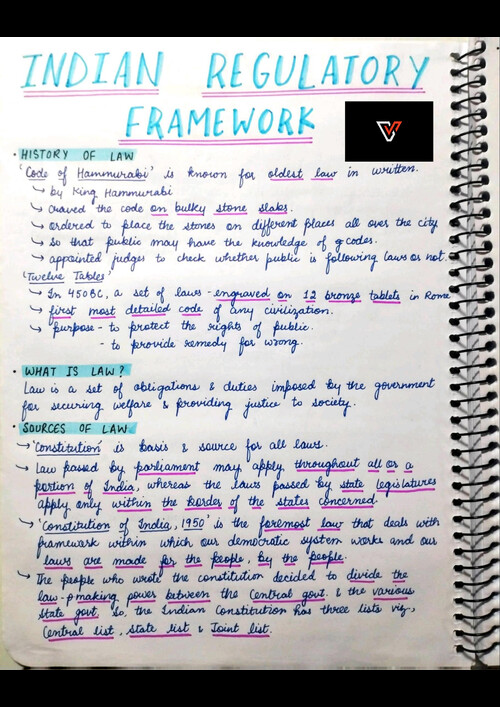 INDIAN REGULATORY
FRAMEWORK
• HISTORY OF LAW
'Code of Hammurabi' is known for oldest law in written.
↳ by King Hammurabi
↳ Craved the code on bulky stone slabs.
↳ ordered to place the stones on different places all over the city
↳ so that public may have the knowledge of codes.
↳ appointed judges to check whether public is following laws or not.
'Twelve Tables'
↳ In 450BC, a set of laws - engraved on 12 bronze tablets in Rome
↳ first most detailed code of any civilization.
↳ purpose - to protect the rights of public.
- to provide remedy for wrong.
• WHAT IS LAW?
Law is a set of obligations & duties imposed by the government
for securing welfare & providing justice to society.
• SOURCES OF LAW
→ 'Constitution' is basis & source for all laws.
→ Law passed by parliament may apply throughout all or a
portion of India, whereas the laws passed by state legislatures
apply only within the border of the states concerned.
→ 'Constitution of India, 1950' is the foremost law that deals with
framework within which our democratic system works and our
laws are made for the people, by the people.
→ The people who wrote the constitution decided to divide the
law-making power between the Central govt. & the various
State govt. so, the Indian Constitution has three lists viz,
Central list, State list & Joint list.